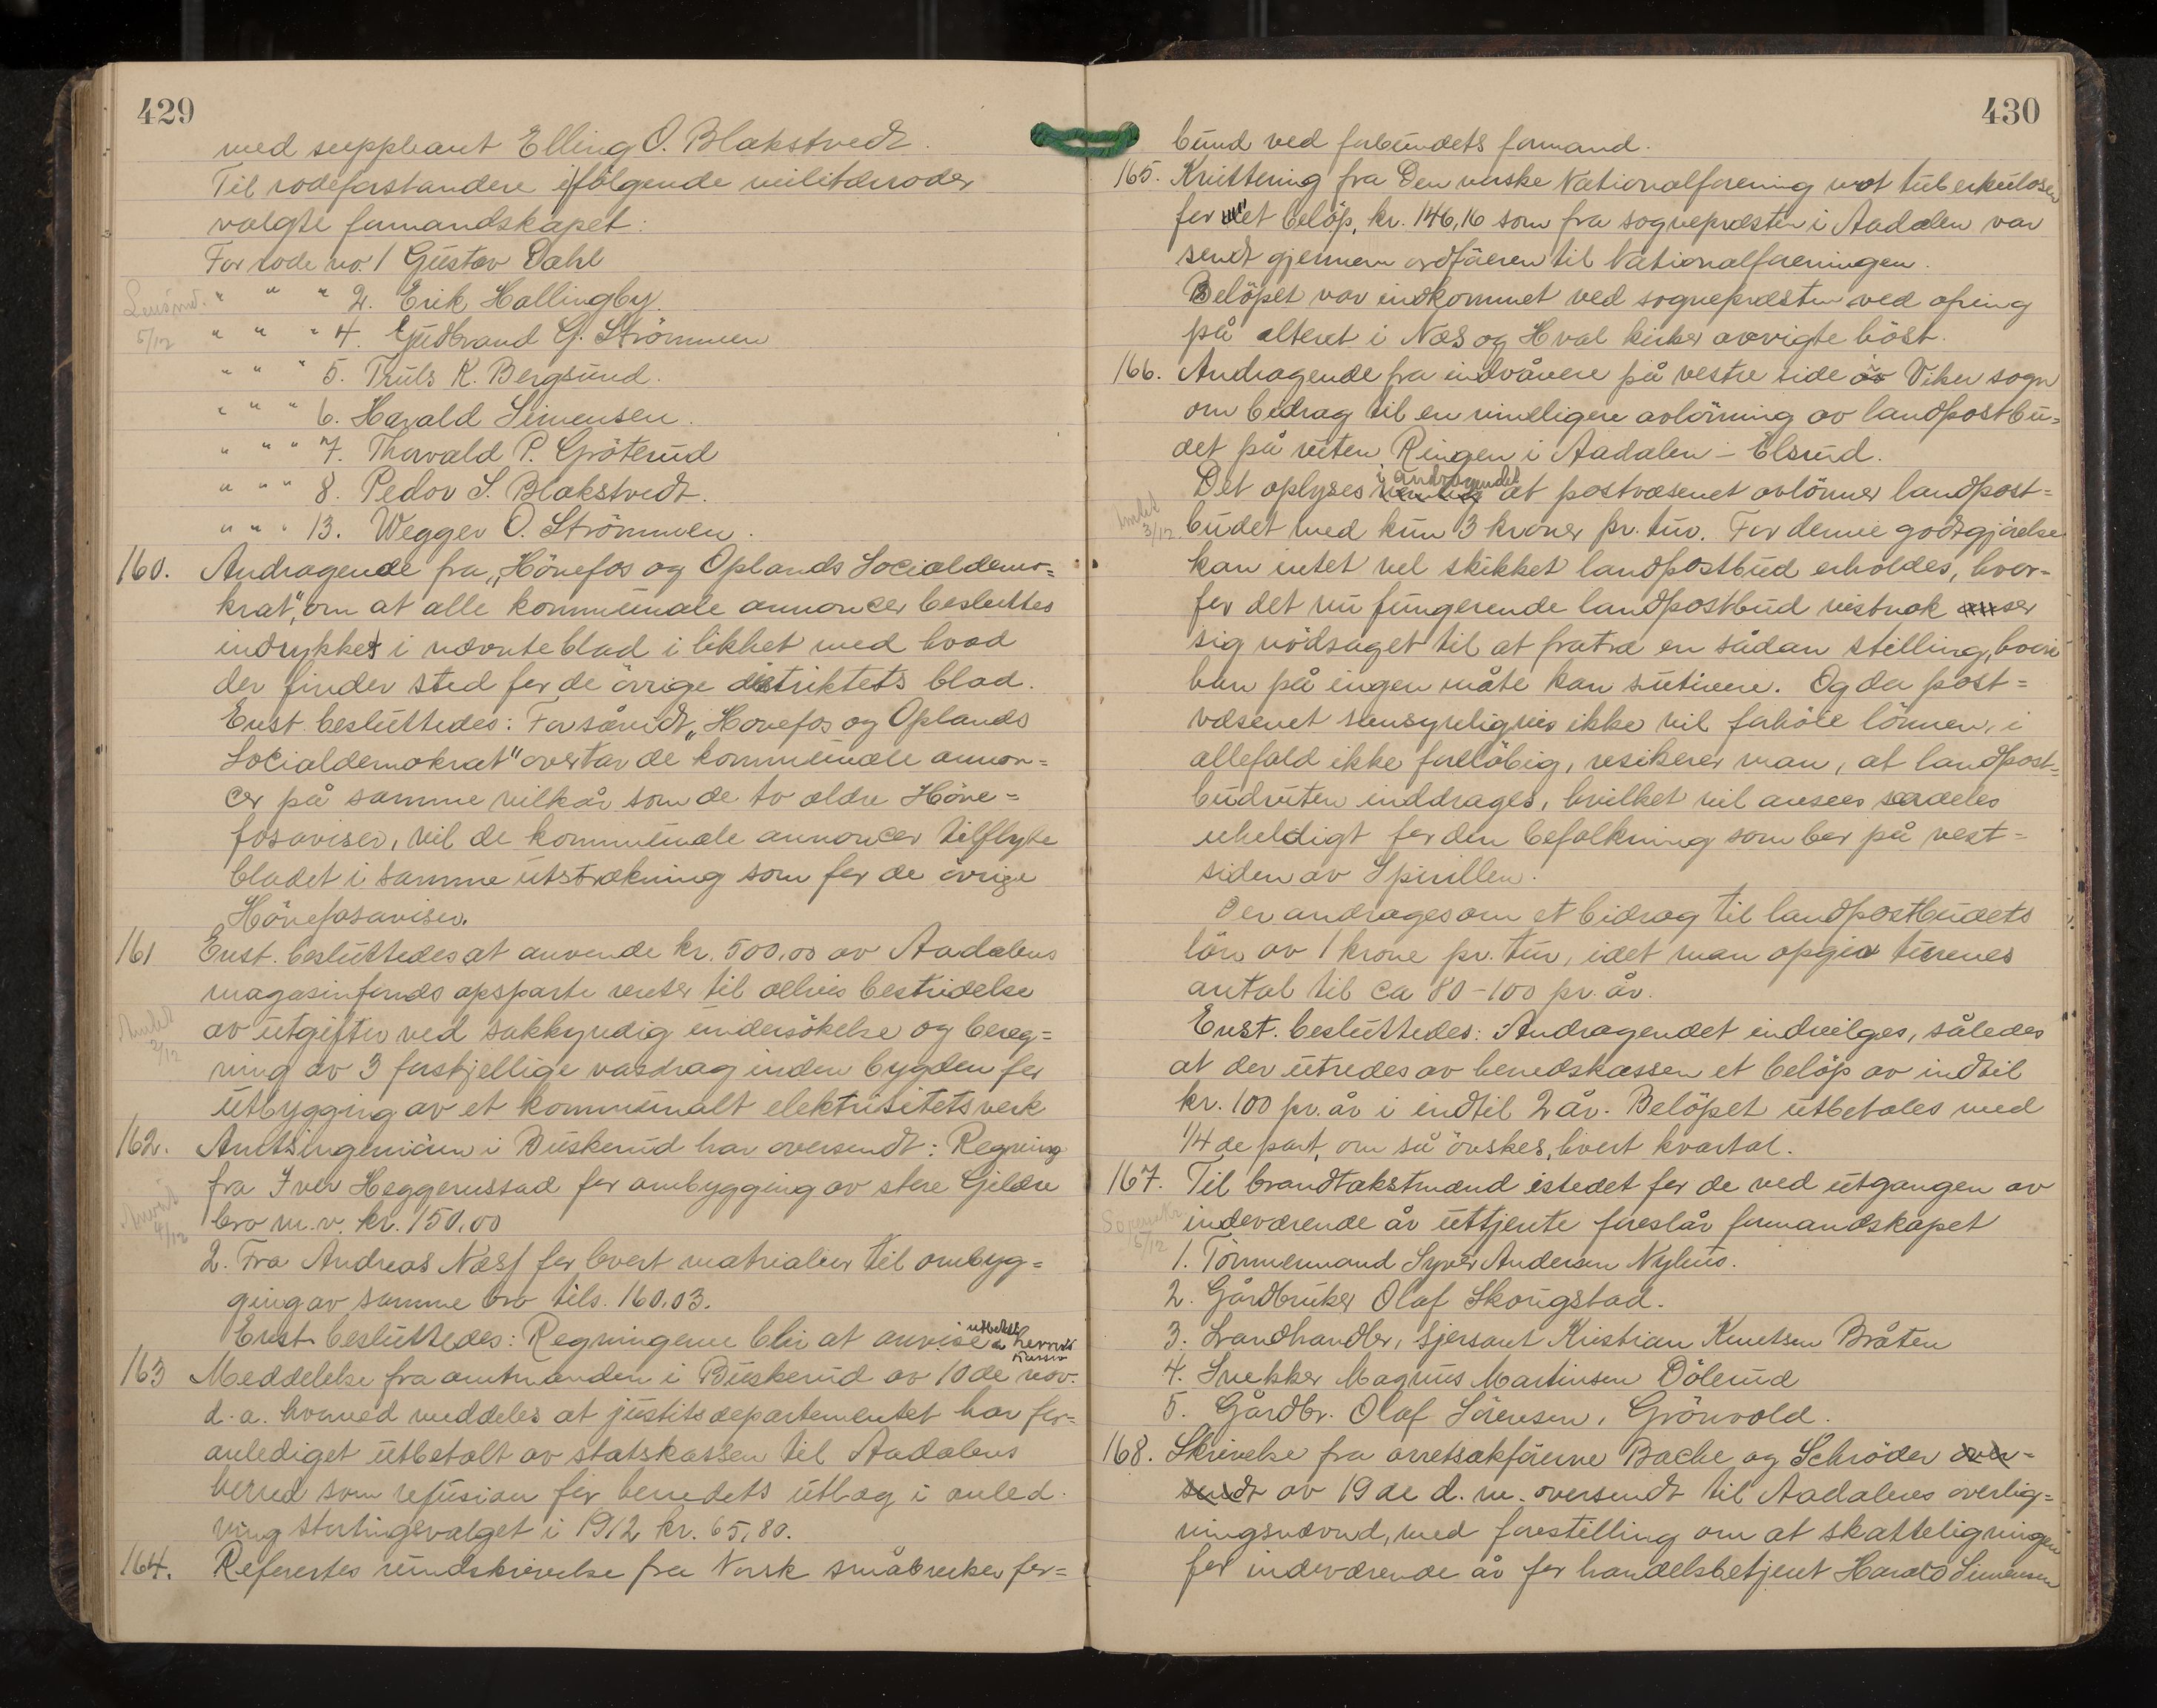 429
med suppleant Elling O. Blakstvedt.
Til rodeforstandere i følgende militærroder
valgte formandskapet:
For rode no. 1 Gustav Dahl
Lensmd. " " " 2. Erik Hallingby.
5/12 " " " 4. Gudbrand G. Strömmen
" " " 5. Truls K. Bergsund.
" " " 6. Harald Simensen.
" " " 7. Thorvald P. Gröterud
" " " 8. Peder S. Blakstvedt.
" " " 13. Wegger O. Strömmen.
160. Andragende fra „Hönefos og Oplands Socialdemo=
krat", om at alle kommunale annoncer besluttes
indrykket i nævnte blad i likhet med hvad
der finder sted for de övrige distriktets blad.
Enst. besluttedes: Forsåvidt „Hönefos og Oplands
Socialdemokrat" overtar de kommunale annon=
cer på samme vilkår som de to ældre Höne=
fosaviser, vil de kommunale annoncer tilflyte
bladet i samme utstrækning som for de övrige
Hönefosaviser.
161 Enst. besluttedes at anvende kr. 500,00 av Aadalens
magasinfonds opsparte renter til delvis bestridelse
av utgifter ved sakkyndig undersökelse og bereg=
2/12
ning av 3 forskjellige vasdrag inden bygden for
utbygging av et kommunalt elektrisitetsverk
162. Amtsingeniören i Buskerud har oversendt: Regning
fra Iver Heggerustad for ombygging av store Gjeldre
bro m.v. kr. 150,00
4/12
2. Fra Andreas Næss for levert matrialer til ombyg=
ging av samme bro tils. 160.03.
Enst. besluttedes: Regningene blir at anvise utbetalt av herreds
kassen
163 Meddelelse fra amtmanden i Buskerud av 10de nov.
d.a. hvorved meddeles at justitsdepartementet har for=
anlediget utbetalt av statskassen til Aadalens
herred som refusion for herredets utlæg i anled.
ning stortingsvalget i 1912 kr. 65,80.
164. Referertes rundskrivelse fra Norsk småbruker for=
430
bund ved forbundets formand.
165. Kvittering fra Den norske Nationalforening mot tuberkulosen
for et belöp, kr. 146,16 som fra sognepresten i Aadalen var
sendt gjennem ordföreren til Nationalforeningen.
Belöpet var indkommet ved sognepresten ved ofring
på alteret i Næs og Hval kirker avvigte höst.
166. Andragende fra indvånere på vestre side av Viker sogn
om bidrag til en rimeligere avlönning av landpostbu=
det på ruten Ringen i Aadalen – Elsrud.
Det oplyses i andragendet at postvæsenet avlönner landpost=
Amtet
3/12 budet med kun 3 kroner pr. tur. For denne godtgjörelse
kan intet vel skikket landpostbud erholdes, hvor=
for det nu fungerende landpostbud nestnok ser
sig nödsaget til at fratræ en sådan stilling, hvori
han på ingen måte kan sutinere. Og da post=
væsenet sansynligvis ikke vil forhöie lönnen, i
allefald ikke forelöbig, resikerer man, at landpost=
budruten inddrages, hvilket vil ansees særdeles
uheldigt for den befolkning som bor på vest=
siden av Spirillen.
Der andrages om et bidrag til landpostbudets
lön av 1 krone pr. tur, idet man opgir turenes
antal til ca 80-100 pr. år.
Enst. besluttedes: Andragendet indvilges, således
at der utredes av herredskassen et belöp av indtil
kr. 100 pr. år i indtil 2 år. Belöpet utbetales med
1/4 de part, om så önskes, hvert kvartal.
167. Til brandtakstmænd istedet for de ved utgangen av
5/12
indeværende år uttjente foreslår formandskapet
1. Tömmermand Syver Andersen Nyhus.
2. Gårdbruker Olaf Skougstad.
3. Landhandler, sjersant Kristian Knutsen Bråten
4. Snekker Magnus Martinsen Dölerud
5. Gårdbr. Olaf Sörensen, Grönvold.
168. Skrivelse fra orretsakförerne Bache og Schröder over=
sendt av 19de d.m. oversendt til Aadalens overlig=
ningsnævnd, med forestilling om at skatteligningen
for indeværende år for handelsbetjent Harald Simensen